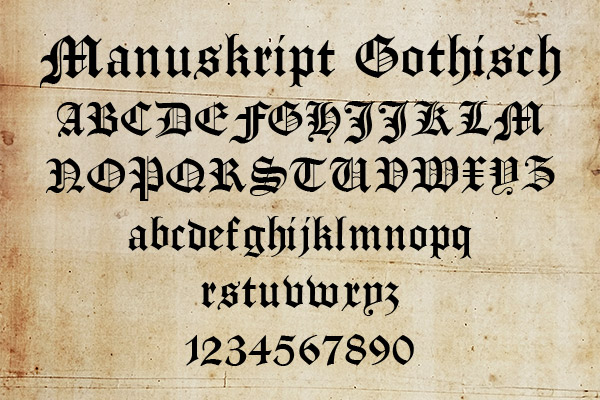 Manuskript Gothisch
ABCDEFGHIJKLM
NOPQRSTUVWXYZ
abcdefghijklmnopq
rstuvwxyz
1234567890